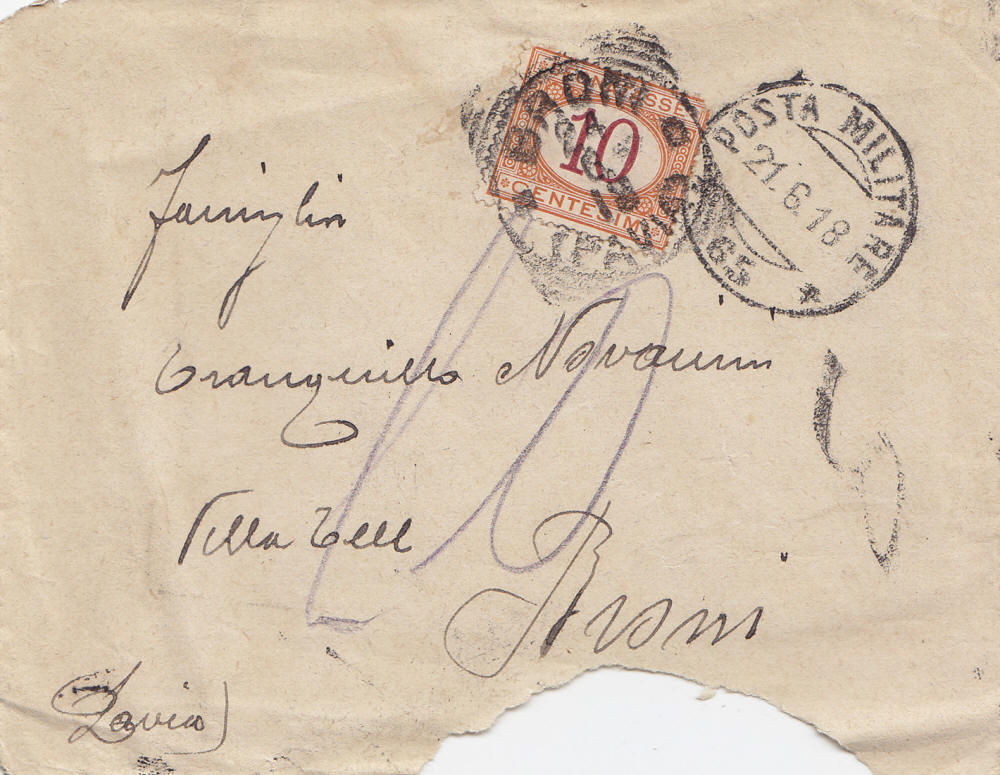 SEGNATASSE
10
CENTESIMI
BRONI
PAVIA
POSTA MILITARE
21.6.18
65
Famiglia
Tranquillo Novarini
Villa Tell
10
Broni
(Pavia)